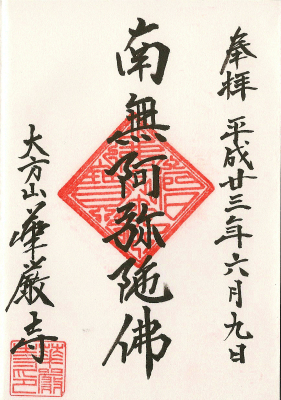 奉拝 平成廿三年六月九日
南無阿弥陀佛
大方山 華厳寺